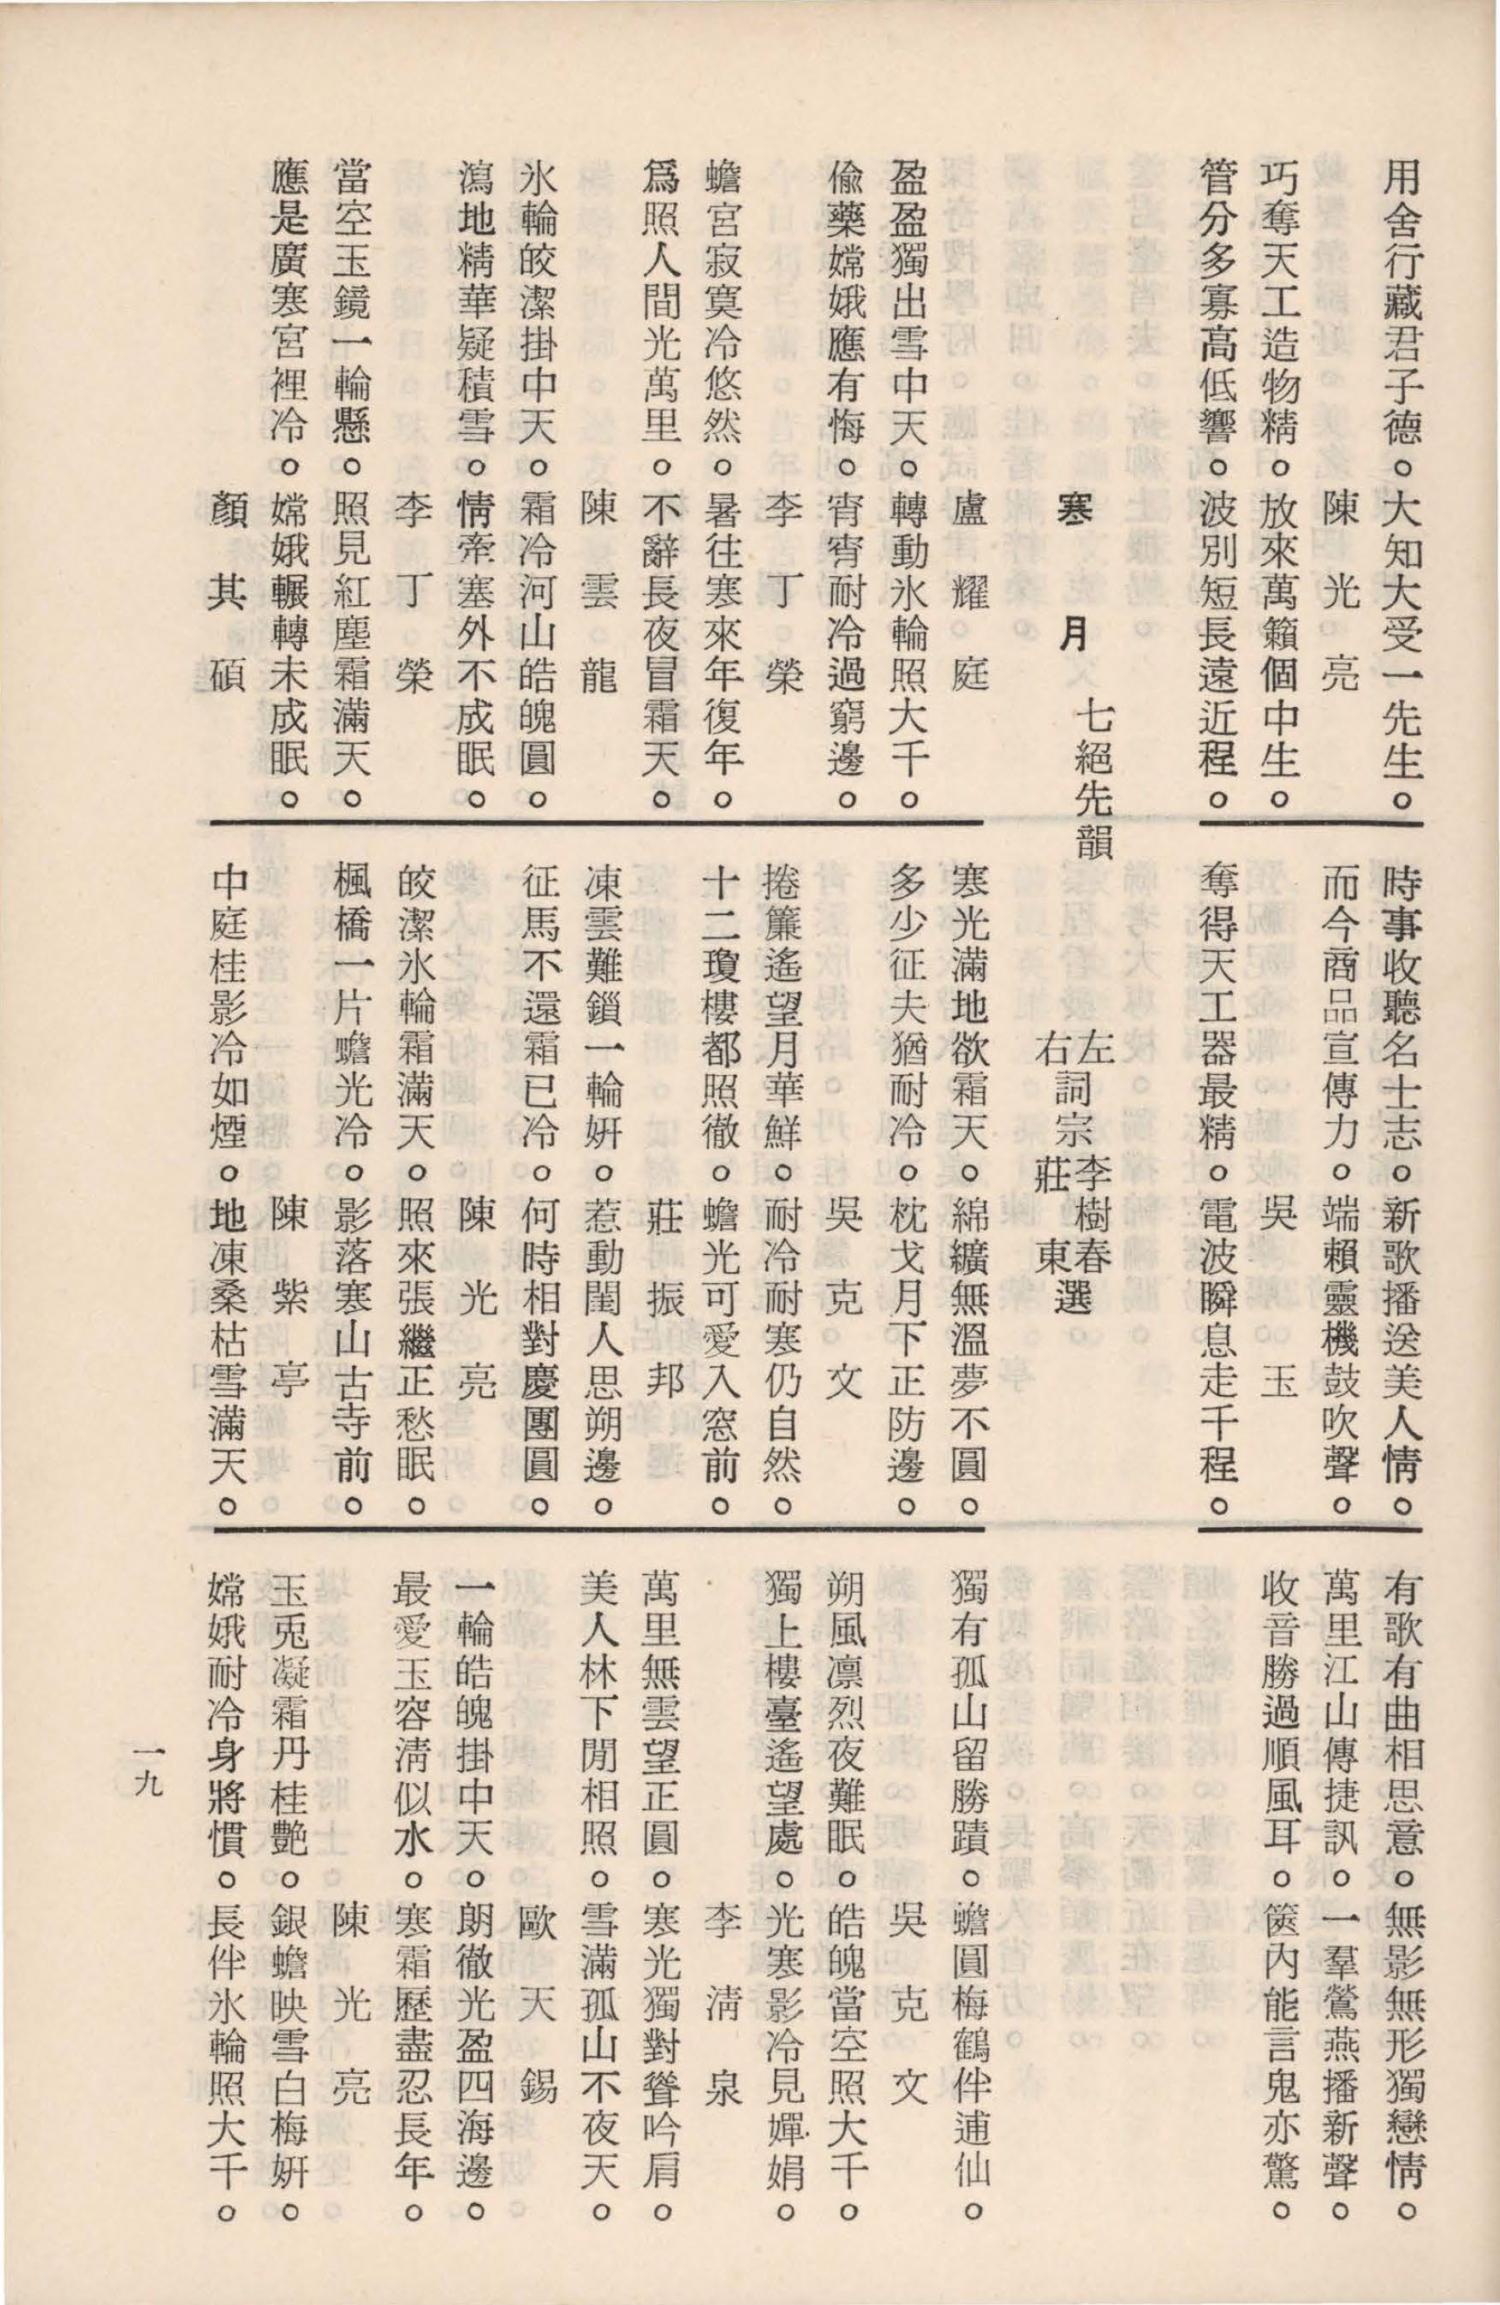 用舍行藏君子德。大知大受一先生。
陳光亮
巧奪天工造物精。放來萬籟個中生。
管分多寡高低響。波別短長遠近程。
時事收聽名士志。新歌播送美人情。
而今商品宣傳力。端賴靈機鼓吹聲。
吳玉
奪得天工器最精。電波瞬息走千程。
有歌有曲相思意。無影無形獨戀情。
萬里江山傳捷訊。一羣鶯燕播新聲。
收音勝過順風耳。篋內能言鬼亦驚。
寒月 七絕先韻 左右詞宗李樹春莊東選
盧耀庭
盈盈獨出雪中天。轉動氷輪照大千。
偸藥嫦娥應有悔。宵宵耐冷過窮邊。
李丁榮
蟾宮寂寞冷悠然。暑往寒來年復年。
爲照人間光萬里。不辭長夜冒霜天。
陳雲龍
氷輪皎潔掛中天。霜冷河山皓魄圓。
瀉地精華疑積雪。情牽塞外不成眠。
李丁榮
當空玉鏡一輪懸。照見紅塵霜滿天。
應是廣寒宮裡冷。嫦娥輾轉未成眠。
顏其碩
寒光滿地欲霜天。綿纊無溫夢不圓。
多少征夫猶耐冷。枕戈月下正防邊。
吳克文
捲簾遙望月華鮮。耐冷耐寒仍自然。
十二瓊樓都照徹。蟾光可愛入窓前。
莊振邦
凍雲難鎖一輪姸。惹動閨人思朔邊。
征馬不還霜已冷。何時相對慶團圓。
陳光亮
皎潔氷輪霜滿天。照來張繼正愁眠。
楓橋一片蟾光冷。影落寒山古寺前。
陳紫亭
中庭桂影冷如煙。地凍桑枯雪滿天。
獨有孤山留勝蹟。蟾圓梅鶴伴逋仙。
吳克文
朔風凛烈夜難眠。皓魄當空照大千。
獨上樓臺遙望處。光寒影冷見嬋娟。
李淸泉
萬里無雲望正圓。寒光獨對聳吟肩。
美人林下閒相照。雪滿孤山不夜天。
歐天錫
一輪皓魄掛中天。朗徹光盈四海邊。
最愛玉容淸似水。寒霜歷盡忍長年。
陳光亮
玉兎凝霜丹桂艶。銀蟾映雪白梅姸。
嫦娥耐冷身將慣。長伴氷輪照大千。
一九